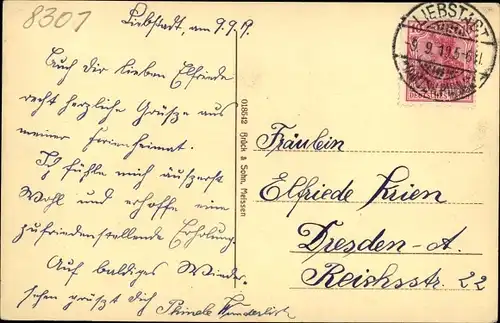 8301
Liebstadt, am 9.9.19.
Auch dir lieben Elfriede
recht herzliche Grüße aus
meiner Ferienheimat.
Ich fühle mich äußerst
Wohl und erhoffe eine
zufriedenstellende Erholung.
Auf baldiges Wieder-
sehen grüßt dich
018542 Brück & Sohn, Meissen
LIEBSTADT
9.9.19.5-6N.
Fräulein
Elfriede Krien
Dresden-A.
Reichsstr. 22